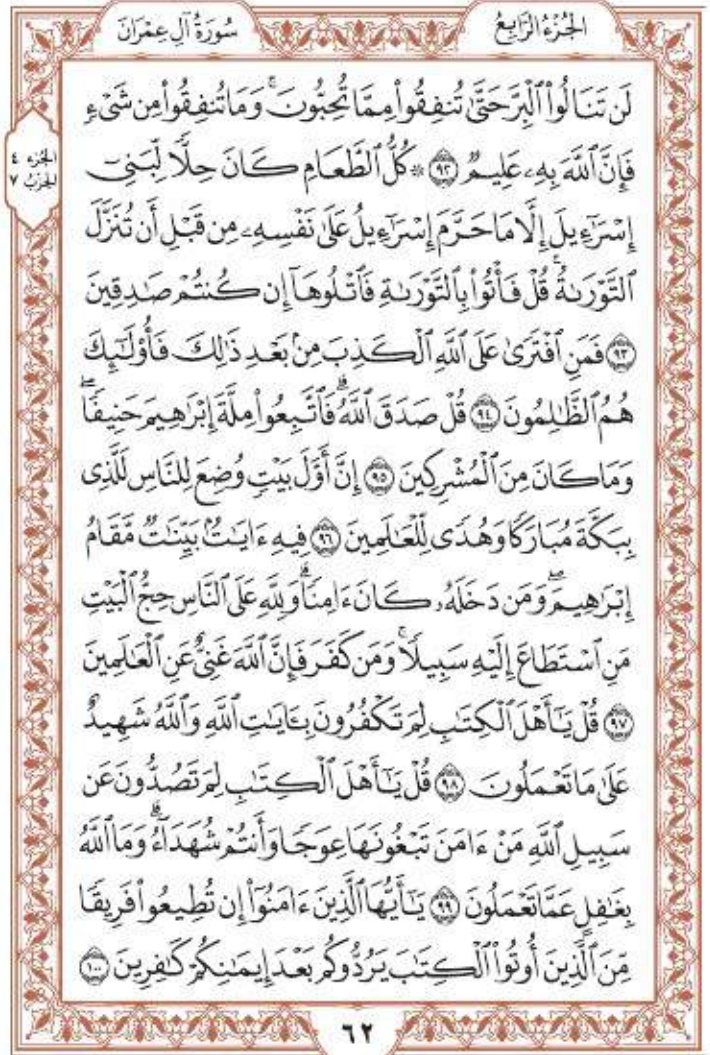 الجُزْءُ الرَّابِعُ
سُورَةُ آلِ عِمْرَانَ
لَن تَنَالُوا۟ ٱلْبِرَّ حَتَّىٰ تُنفِقُوا۟ مِمَّا تُحِبُّونَ ۚ وَمَا تُنفِقُوا۟ مِن شَىْءٍ
فَإِنَّ ٱللَّهَ بِهِۦ عَلِيمٌ ٩٢ ۞ كُلُّ ٱلطَّعَامِ كَانَ حِلًّا لِّبَنِىٓ
إِسْرَٰٓءِيلَ إِلَّا مَا حَرَّمَ إِسْرَٰٓءِيلُ عَلَىٰ نَفْسِهِۦ مِن قَبْلِ أَن تُنَزَّلَ
ٱلتَّوْرَىٰةُ ۗ قُلْ فَأْتُوا۟ بِٱلتَّوْرَىٰةِ فَٱتْلُوهَآ إِن كُنتُمْ صَـٰدِقِينَ
٩٣ فَمَنِ ٱفْتَرَىٰ عَلَى ٱللَّهِ ٱلْكَذِبَ مِنۢ بَعْدِ ذَٰلِكَ فَأُو۟لَـٰٓئِكَ
هُمُ ٱلظَّـٰلِمُونَ ٩٤ قُلْ صَدَقَ ٱللَّهُ ۗ فَٱتَّبِعُوا۟ مِلَّةَ إِبْرَٰهِيمَ حَنِيفًا ۖ
وَمَا كَانَ مِنَ ٱلْمُشْرِكِينَ ٩٥ إِنَّ أَوَّلَ بَيْتٍ وُضِعَ لِلنَّاسِ لَلَّذِى
بِبَكَّةَ مُبَارَكًا وَهُدًى لِّلْعَـٰلَمِينَ ٩٦ فِيهِ ءَايَـٰتٌۢ بَيِّنَـٰتٌ مَّقَامُ
إِبْرَٰهِيمَ ۖ وَمَن دَخَلَهُۥ كَانَ ءَامِنًا ۗ وَلِلَّهِ عَلَى ٱلنَّاسِ حِجُّ ٱلْبَيْتِ
مَنِ ٱسْتَطَاعَ إِلَيْهِ سَبِيلًا ۚ وَمَن كَفَرَ فَإِنَّ ٱللَّهَ غَنِىٌّ عَنِ ٱلْعَـٰلَمِينَ
٩٧ قُلْ يَـٰٓأَهْلَ ٱلْكِتَـٰبِ لِمَ تَكْفُرُونَ بِـَٔايَـٰتِ ٱللَّهِ وَٱللَّهُ شَهِيدٌ
عَلَىٰ مَا تَعْمَلُونَ ٩٨ قُلْ يَـٰٓأَهْلَ ٱلْكِتَـٰبِ لِمَ تَصُدُّونَ عَن
سَبِيلِ ٱللَّهِ مَنْ ءَامَنَ تَبْغُونَهَا عِوَجًا وَأَنتُمْ شُهَدَآءُ ۗ وَمَا ٱللَّهُ
بِغَـٰفِلٍ عَمَّا تَعْمَلُونَ ٩٩ يَـٰٓأَيُّهَا ٱلَّذِينَ ءَامَنُوٓا۟ إِن تُطِيعُوا۟ فَرِيقًا
مِّنَ ٱلَّذِينَ أُوتُوا۟ ٱلْكِتَـٰبَ يَرُدُّوكُم بَعْدَ إِيمَـٰنِكُمْ كَـٰفِرِينَ ١٠٠
الجزء ٤
الحزب ٧
٦٢